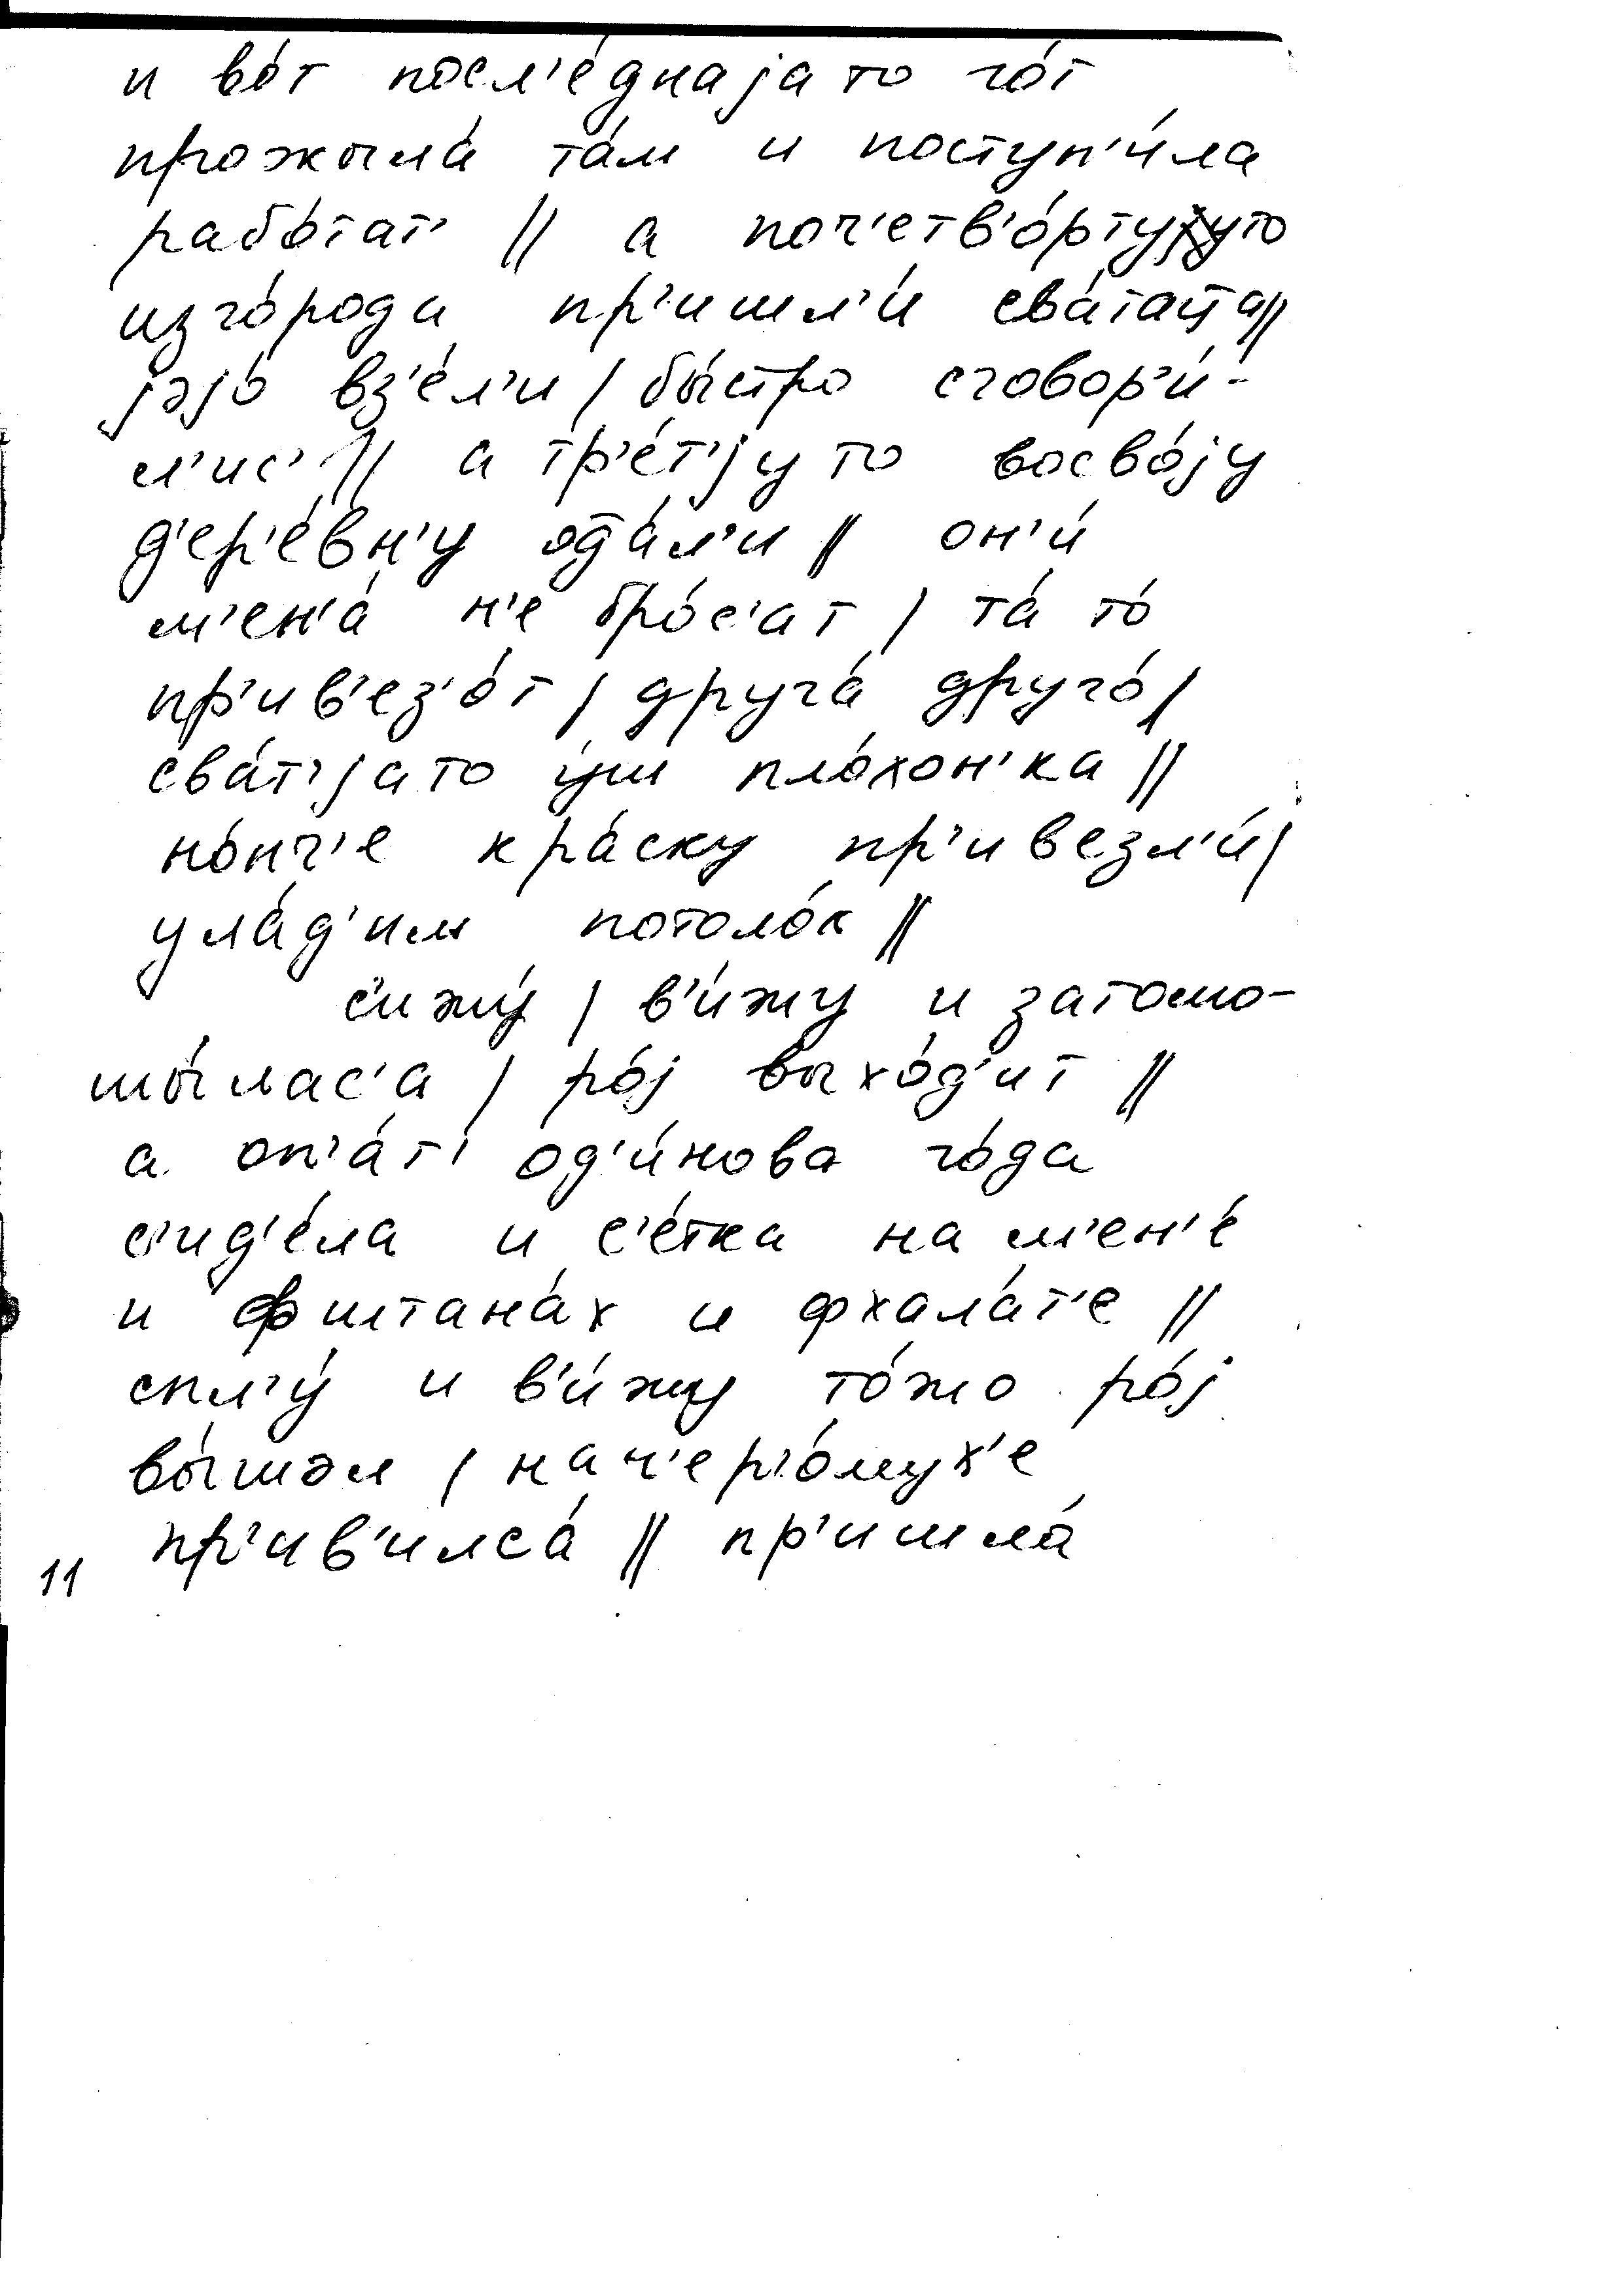 и во́т посл'е́днаjа то го́т
прожыла́ та́м и поступ'и́ла
рабо́тат' // а поч'етв'о́рту уто
изго́рода пр'ишл'и́ сва́таца//
jэjо́ вз'е́л'и / бы́стро сговор'и́-
л'ис' // а тр'е́т'jу то восво́jу
д'ер'е́вн'у ода́л'и // он'и́
м'ен'а́ н'е бро́с'ат / та́ то́
пр'ив'ез'о́т / друга́ друго́ /
сва́т'jа то у́ш пло́хон'ка //
но́нч'е кра́ску пр'ивезл'и́ /
ула́д'им потоло́к //
с'ижу́ / в'и́жу и затомо-
шы́лас'а / ро́j выхо́д'ит //
а оп'а́т' од'и́нова го́да
с'ид'е́ла и с'е́тка на м'ен'е́
и фштана́х и фхала́т'е //
спл'у́ и в'и́жу то́жо ро́j
вы́шэл / нач'ер'о́мух'е
пр'ив'илса́ // пр'ишла́
11